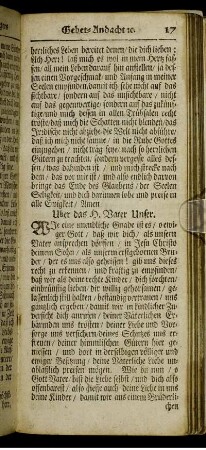 Gebets-Andacht ⁊c. 17
herrliches Leben bereitet denen / die dich lieben:
Ach HErr! laß mich es wol in mein Hertz fas-
sen / all mein Leben darauf hin anstellen / ja des-
sen einen Vorgeschmack und Anfang in meiner
Seelen empfinden / damit ich sehe nicht auf daß
sichtbare / sondern auf das unsichtbare / nicht
auf das gegenwärtige / sondern auf das zukünf-
tige und mich dessen in allen Trübsalen recht
tröste / daß mich die Schatten nicht blenden / das
Irrdische nicht abziehe / die Welt nicht abführe /
daß ich mich nicht säume / in die Ruhe Gottes
einzugehen / mich trag zeige nach so herrlichen
Gütern zu trachten / sondern vergesse alles des-
sen / was dahinden ist / und mich strecke nach
dem / das vor mir ist / und also endlich davon
bringe das Ende des Glaubens / der Seelen
Seligkeit / und dich darinnen lobe und preise in
alle Ewigkeit / Amen.
Über das H. Vater Unser.
WIe eine unendliche Gnade ist es / o ewi-
ger Gott / daß wir dich / als unsern
Vater ansprechen dörffen / in JEsu Christo
deinem Sohn / als unserm erstgebornen Bru-
der / der es uns also geheisen: gib uns dieses
recht zu erkennen / und kräftig zu empfinden
daß wir als deine rechte Kinder / dich hertzlich
einbrünstig lieben / dir willig gehorsamen / ge-
lassentlich still halten / beständig vertrauen / und
gäntzlich ergeben / damit wir in kindlicher Zu-
versicht dich anruffen / deiner Väterlichen Er-
barmden uns trösten / deiner Liebe und Vor-
sorge uns versichern / deines Schutzes uns er-
freuen / deiner himmlischen Güter hier ge-
niessen / und dort in derselbigen völliger und
ewiger Besitzung / deine Väterliche Liebe un-
ablässlich preisen mögen. Wie du nun / o
Gott Vater / bist die Liebe selbst / und dich also
offenbarest / also flösse auch deine Liebe in uns
deine Kinder / damit wir aus einem Brüderli-
chen